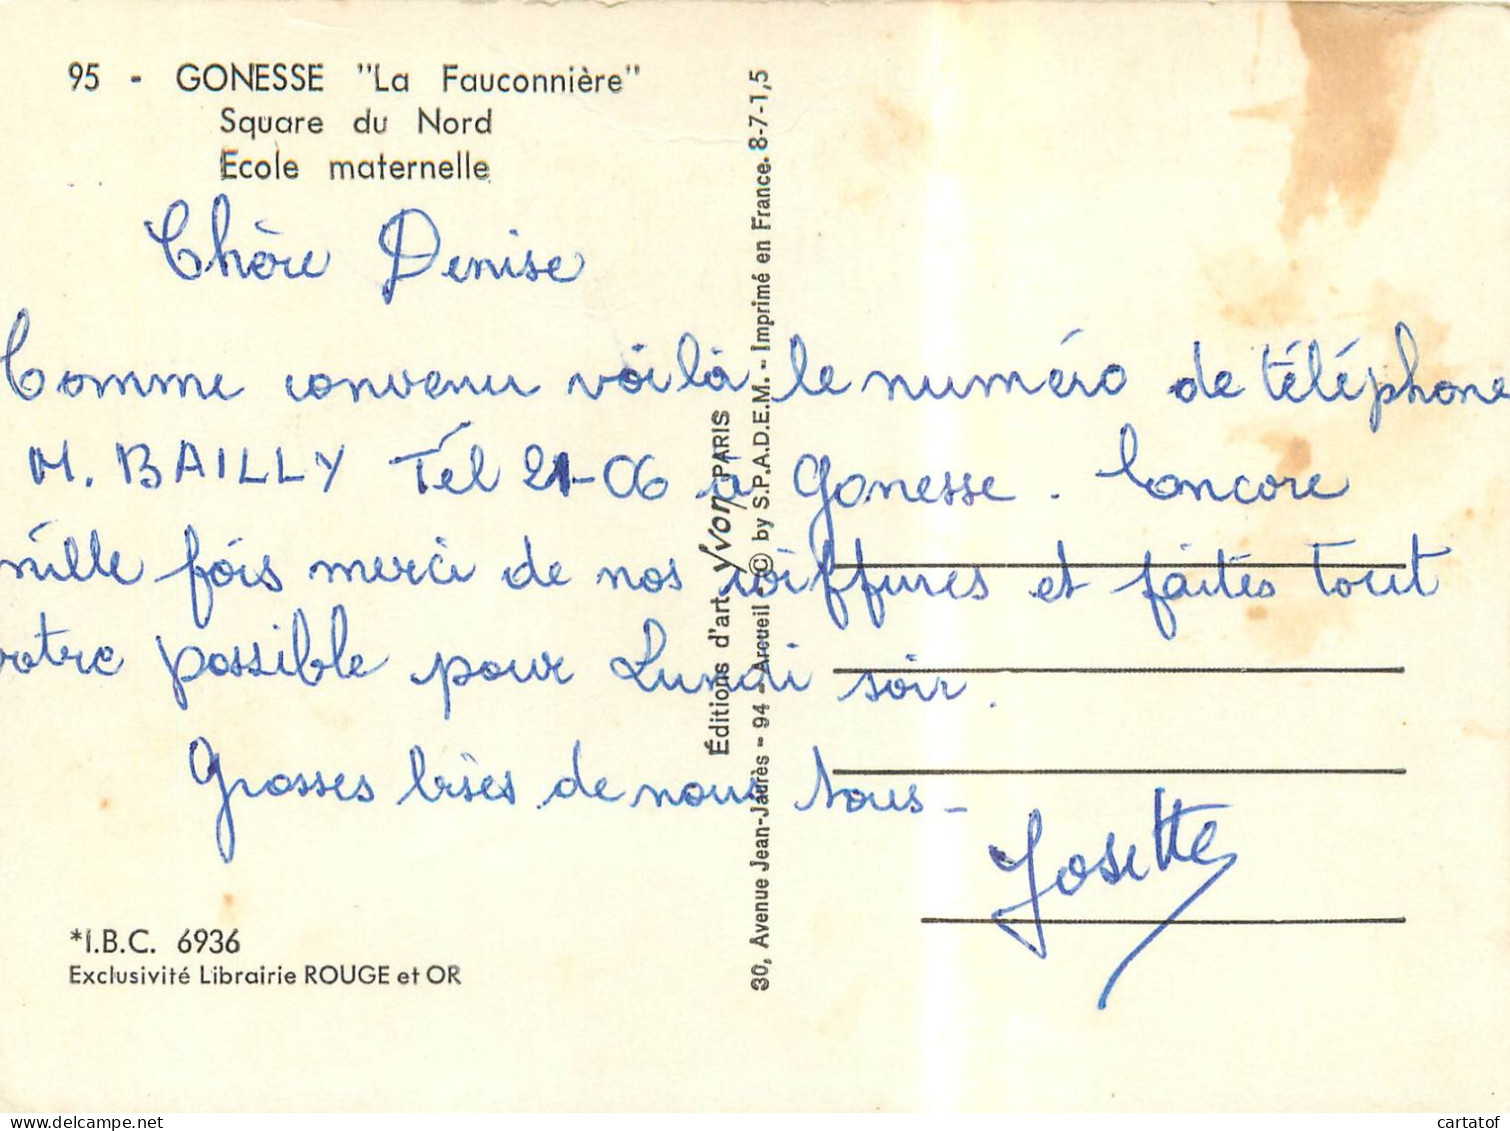 95 - GONESSE "La Fauconnière"
Square du Nord
Ecole maternelle
Chère Denise
Comme convenu voilà le numéro de téléphone
M. BAILLY Tél 21-06 à Gonesse. Concore
mille fois merci de nos coiffures et faites tout
votre possible pour Lundi soir.
Grosses bises de nous tous -
Josette
*I.B.C. 6936
Exclusivité Librairie ROUGE et OR
Éditions d'art Yvon PARIS
30, Avenue Jean-Jaurès - 94 - Arcueil - © by S.P.A.D.E.M. - Imprimé en France. 8-7-1,5
cartatof